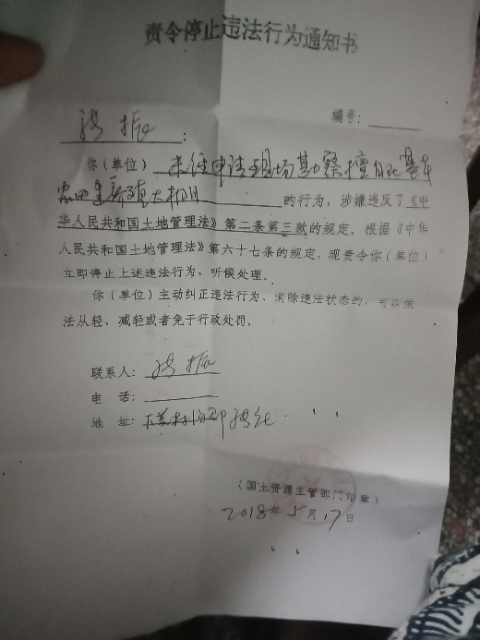 责令停止违法行为通知书
编号：
你（单位）未经申请现场勘察擅自
的行为，涉嫌违反了《中
华人民共和国土地管理法》第二条第三款的规定。根据《中华
人民共和国土地管理法》第六十七条的规定，现责令你（单位）
立即停止上述违法行为，听候处理。
你（单位）主动纠正违法行为、消除违法状态的，可以依
法从轻、减轻或者免于行政处罚。
联系人：
电 话：
地 址：
（国土资源主管部门印章）
2018年5月17日